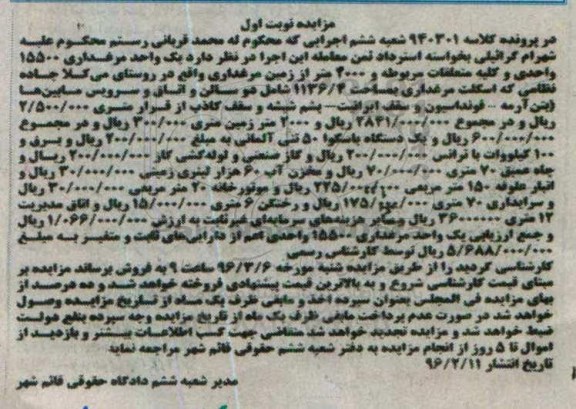 مزایده نوبت اول
در پرونده کلاسه ۹۴۰۳۰۱ شعبه ششم اجرایی که محکوم له محمد قربانی رستم محکوم علیه
شهرام گرائیلی بخواسته استرداد ثمن معامله این اجرا در نظر دارد یک واحد مرغداری ۱۵۵۰۰
واحدی و کلیه متعلقات مربوطه و ۲۰۰۰ متر از زمین مرغداری واقع در روستای می کلا جاده
نظامی که اسکلت مرغداری بمساحت ۱۱۳۶/۴ شامل دو سالن و اتاق و سرویس مابین‌ها
(بتن آرمه - فونداسیون و سقف ایرانیت- پشم شیشه و سقف کاذب از قرار متری ۲/۵۰۰/۰۰۰
ریال و در مجموع ۲۸۴۱/۰۰۰/۰۰۰ ریال و ۲۰۰۰ متر زمین متری ۳۰۰/۰۰۰ ریال و در مجموع
۶۰۰/۰۰۰/۰۰۰ ریال و یک دستگاه باسکول ۵۰ تنی آلمانی به مبلغ ۲۰۰/۰۰۰/۰۰۰ ریال و برق و
۱۰۰ کیلووات با ترانس ۲۰۰/۰۰۰/۰۰۰ ریال و گاز صنعتی و لوله کشی گاز ۲۰۰/۰۰۰/۰۰۰ ریال و
چاه عمیق ۷۰ متری ۷۰/۰۰۰/۰۰۰ ریال و مخزن آب ۶۰ هزار لیتری زمینی ۳۰/۰۰۰/۰۰۰ ریال و
انبار علوفه ۱۵۰ متر مربعی ۲۲۵/۰۰۰/۰۰۰ ریال و موتورخانه ۲۰ متر مربعی ۳۰/۰۰۰/۰۰۰ ریال
و سرایداری ۷۰ متری ۱۷۵/۰۰۰/۰۰۰ ریال و رختکن ۶ متری ۱۵/۰۰۰/۰۰۰ ریال و اتاق مدیریت
۱۲ متری ۳۶۰۰۰۰۰۰ ریال و سایر هزینه‌های سرمایه‌ای غیر ثابت به ارزش ۱/۰۶۶/۰۰۰/۰۰۰ ریال
و جمع ارزیابی یک واحد مرغداری ۱۵۵۰۰ واحدی اعم از دارایی‌های ثابت و متغیر به مبلغ
۵/۶۸۸/۰۰۰/۰۰۰ ریال توسط کارشناس رسمی
کارشناسی گردید را از طریق مزایده شنبه مورخه ۹۶/۳/۶ ساعت ۹ به فروش برساند مزایده بر
مبنای قیمت کارشناسی شروع و به بالاترین قیمت پیشنهادی فروخته خواهد شد و ده درصد از
بهای مزایده فی المجلس بعنوان سپرده اخذ و مابقی ظرف یک ماه از تاریخ مزایده وصول
خواهد شد در صورت عدم پرداخت مابقی ظرف یک ماه از تاریخ مزایده وجه سپرده بنفع دولت
ضبط خواهد شد و مزایده تجدید خواهد شد متقاضی جهت کسب اطلاعات بیشتر و بازدید از
اموال تا ۵ روز از انجام مزایده به دفتر شعبه ششم حقوقی قائم شهر مراجعه نماید
تاریخ انتشار ۹۶/۲/۱۱
مدیر شعبه ششم دادگاه حقوقی قائم شهر